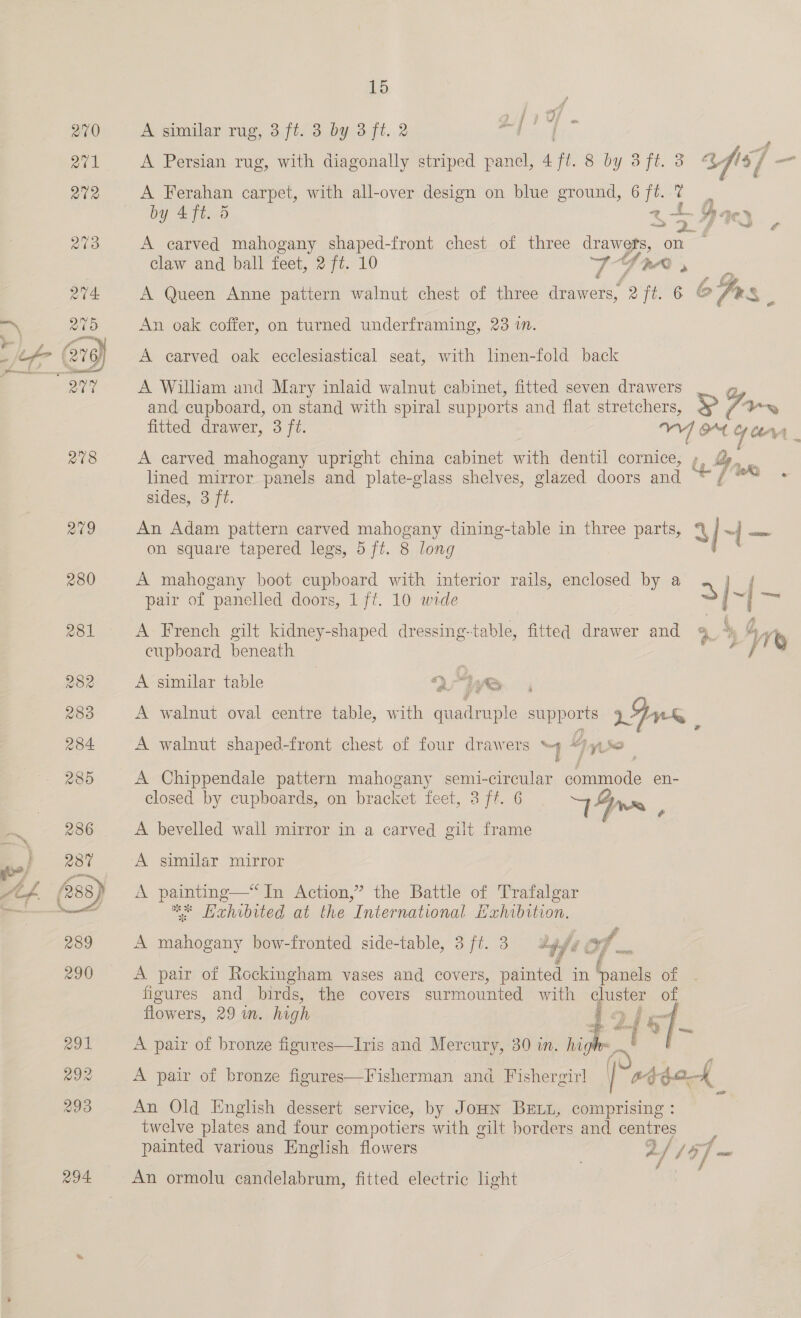 15
270 A similar rug, 3 ft. 3 by 3 ft. 2
271 A Persian rug, with diagonally striped panel, 4 ft. 8 by 3 ft. 3
272 A Ferahan carpet, with all-over design on blue ground, 6 ft. 7
by 4 ft. 5
273 A carved mahogany shaped-front chest of three drawers, on
claw and ball feet, 2 ft. 10
274 A Queen Anne pattern walnut chest of three drawers, 2 ft. 6
275 An oak coffer, on turned underframing, 23 in.
276 A carved oak ecclesiastical seat, with linen-fold back
277 A William and Mary inlaid walnut cabinet, fitted seven drawers
and cupboard, on stand with spiral supports and flat stretchers,
fitted drawer, 3 ft.
278 A carved mahogany upright china cabinet with dentil cornice,
lined mirror panels and plate-glass shelves, glazed doors and
sides, 3 ft.
279 An Adam pattern carved mahogany dining-table in three parts,
on square tapered legs, 5 ft. 8 long
280 A mahogany boot cupboard with interior rails, enclosed by a
pair of panelled doors, 1 ft. 10 wide
281 A French gilt kidney-shaped dressing-table, fitted drawer and
cupboard beneath
282 A similar table
283 A walnut oval centre table, with quadruple supports
284 A walnut shaped-front chest of four drawers
285 A Chippendale pattern mahogany semi-circular commode en-
closed by cupboards, on bracket feet, 3 ft. 6
286 A bevelled wall mirror in a carved gilt frame
287 A similar mirror
288 A painting—“In Action,” the Battle of Trafalgar
*** Exhibited at the International Exhibition.
289 A mahogany bow-fronted side-table, 3 ft. 3
290 A pair of Rockingham vases and covers, painted in panels of
figures and birds, the covers surmounted with cluster of
flowers, 29 in. high
291 A pair of bronze figures—Iris and Mercury, 30 in. high
292 A pair of bronze figures—Fisherman and Fishergirl
293 An Old English dessert service, by JOHN BELL, comprising:
twelve plates and four compotiers with gilt borders and centres
painted various English flowers
294 An ormolu candelabrum, fitted electric light